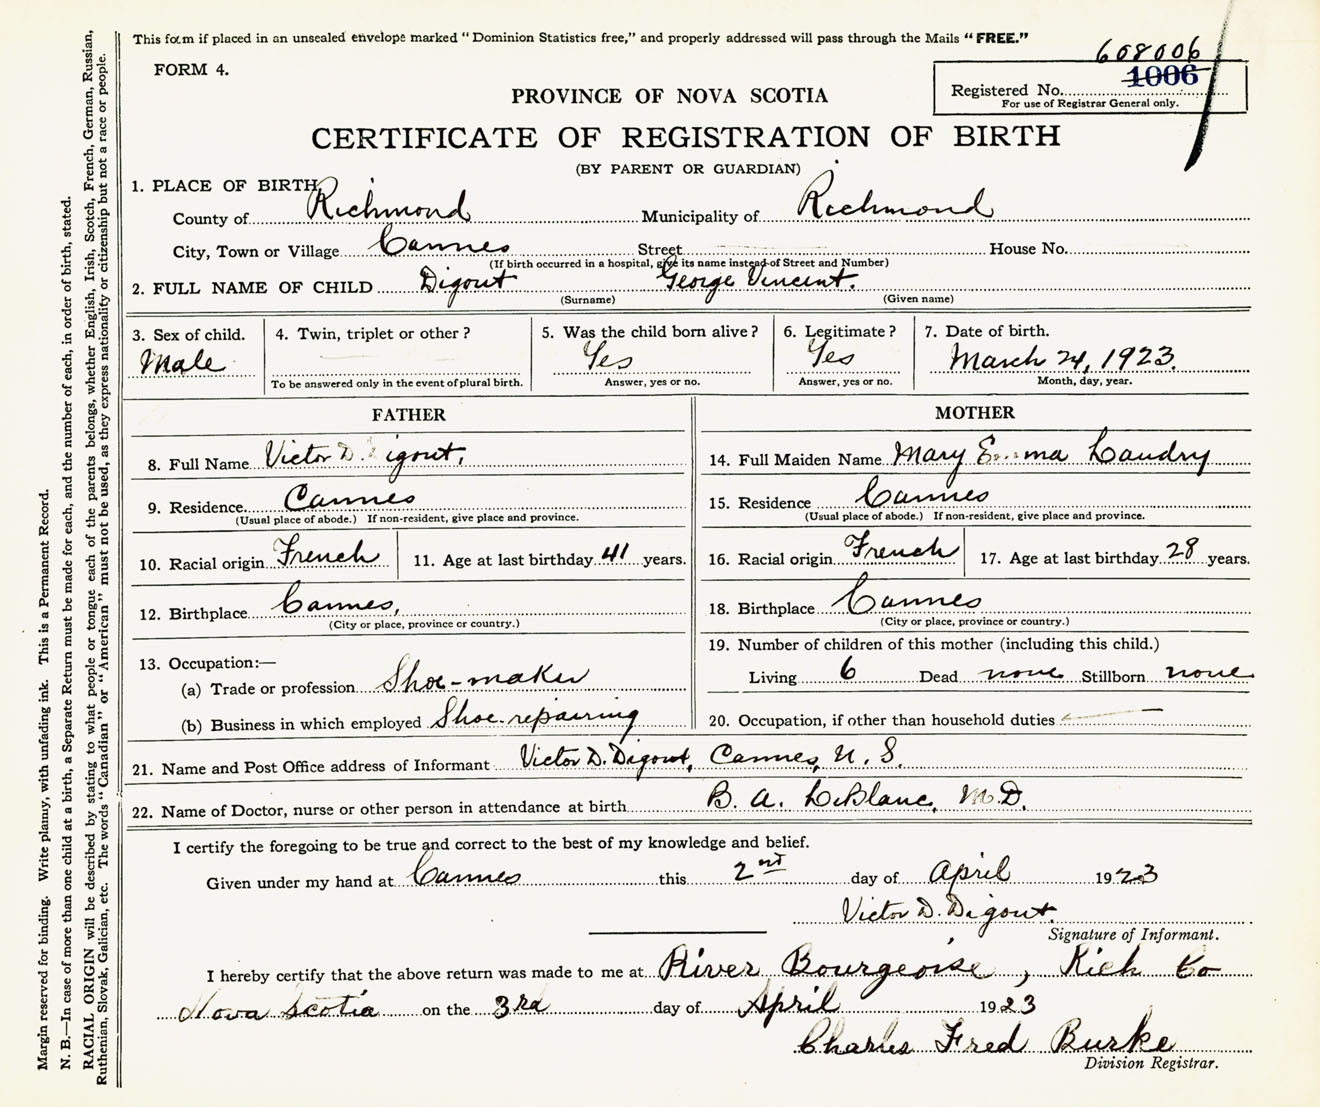 This form if placed in an unsealed envelope marked "Dominion Statistics free," and properly addressed will pass through the Mails "FREE."
608006
FORM 4.
Registered No. 1006
For use of Registrar General only.
PROVINCE OF NOVA SCOTIA
CERTIFICATE OF REGISTRATION OF BIRTH
(BY PARENT OR GUARDIAN)
1. PLACE OF BIRTH
County of Richmond Municipality of Richmond
City, Town or Village Cannes Street House No.
(If birth occurred in a hospital, give its name instead of Street and Number)
2. FULL NAME OF CHILD Digout George Vincent.
(Surname) (Given name)
3. Sex of child. 4. Twin, triplet or other? 5. Was the child born alive? 6. Legitimate? 7. Date of birth.
Male Yes Yes March 24, 1923.
To be answered only in the event of plural birth. Answer, yes or no. Answer, yes or no. Month, day, year.
FATHER MOTHER
8. Full Name Victor D. Digout, 14. Full Maiden Name Mary Emma Landry
9. Residence Cannes 15. Residence Cannes
(Usual place of abode.) If non-resident, give place and province. (Usual place of abode.) If non-resident, give place and province.
10. Racial origin French 11. Age at last birthday 41 years. 16. Racial origin French 17. Age at last birthday 28 years.
12. Birthplace Cannes, 18. Birthplace Cannes
(City or place, province or country.) (City or place, province or country.)
13. Occupation:— 19. Number of children of this mother (including this child.)
(a) Trade or profession Shoe-maker Living 6 Dead none Stillborn none
(b) Business in which employed Shoe-repairing 20. Occupation, if other than household duties
21. Name and Post Office address of Informant Victor D. Digout, Cannes, N. S.
22. Name of Doctor, nurse or other person in attendance at birth B. A. LeBlanc, M.D.
I certify the foregoing to be true and correct to the best of my knowledge and belief.
Given under my hand at Cannes this 2nd day of April 1923
Victor D. Digout.
Signature of Informant.
I hereby certify that the above return was made to me at River Bourgeoise, Rich Co
Nova Scotia on the 3rd day of April 1923
Charles Fred Burke
Division Registrar.
Margin reserved for binding. Write plainly, with unfading ink. This is a Permanent Record.
N. B.—In case of more than one child at a birth, a Separate Return must be made for each, and the number of each, in order of birth, stated.
RACIAL ORIGIN will be described by stating to what people or tongue each of the parents belongs, whether English, Irish, Scotch, French, German, Russian,
Ruthenian, Slovak, Galician, etc. The words "Canadian" or "American" must not be used, as they express nationality or citizenship but not a race or people.